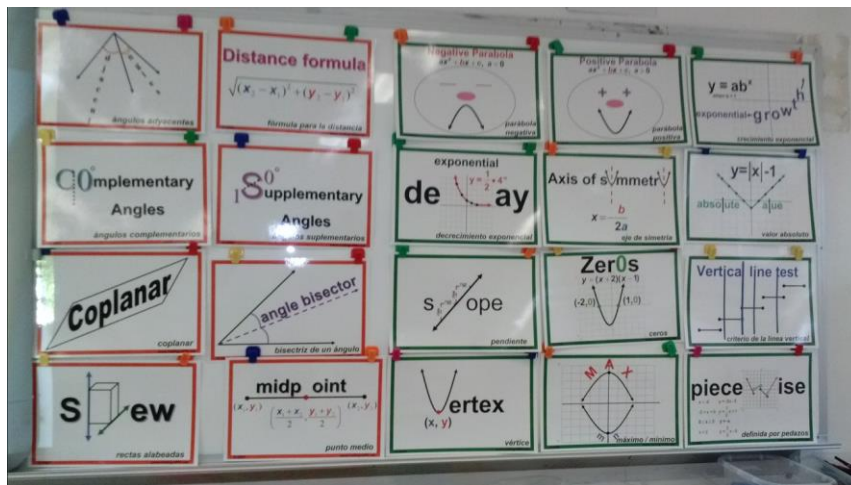 ángulos adyacentes
Distance formula
√(x₂ – x₁)² + (y₂ – y₁)²
fórmula para la distancia
Negative Parabola
parábola
negativa
Positive Parabola
parábola
positiva
y = abˣ
exponential growth
crecimiento exponencial
C0°mplementary
Angles
ángulos complementarios
1S0°upplementary
Angles
ángulos suplementarios
exponential
de ay
decrecimiento exponencial
Axis of symmetry
x = b
2a
eje de simetría
y=|x|-1
absolute alue
valor absoluto
Coplanar
coplanar
angle bisector
bisectriz de un ángulo
s ope
pendiente
Zer0s
y = (x + 2)(x – 1)
(-2,0) (1,0)
ceros
Vertical line test
criterio de la línea vertical
S ew
rectas alabeadas
midp oint
(x₁, y₁) (x₂, y₂)
(x₁ + x₂ / 2, y₁ + y₂ / 2)
punto medio
ertex
(x, y)
vértice
MAX
máximo / mínimo
piece ise
definida por pedazos